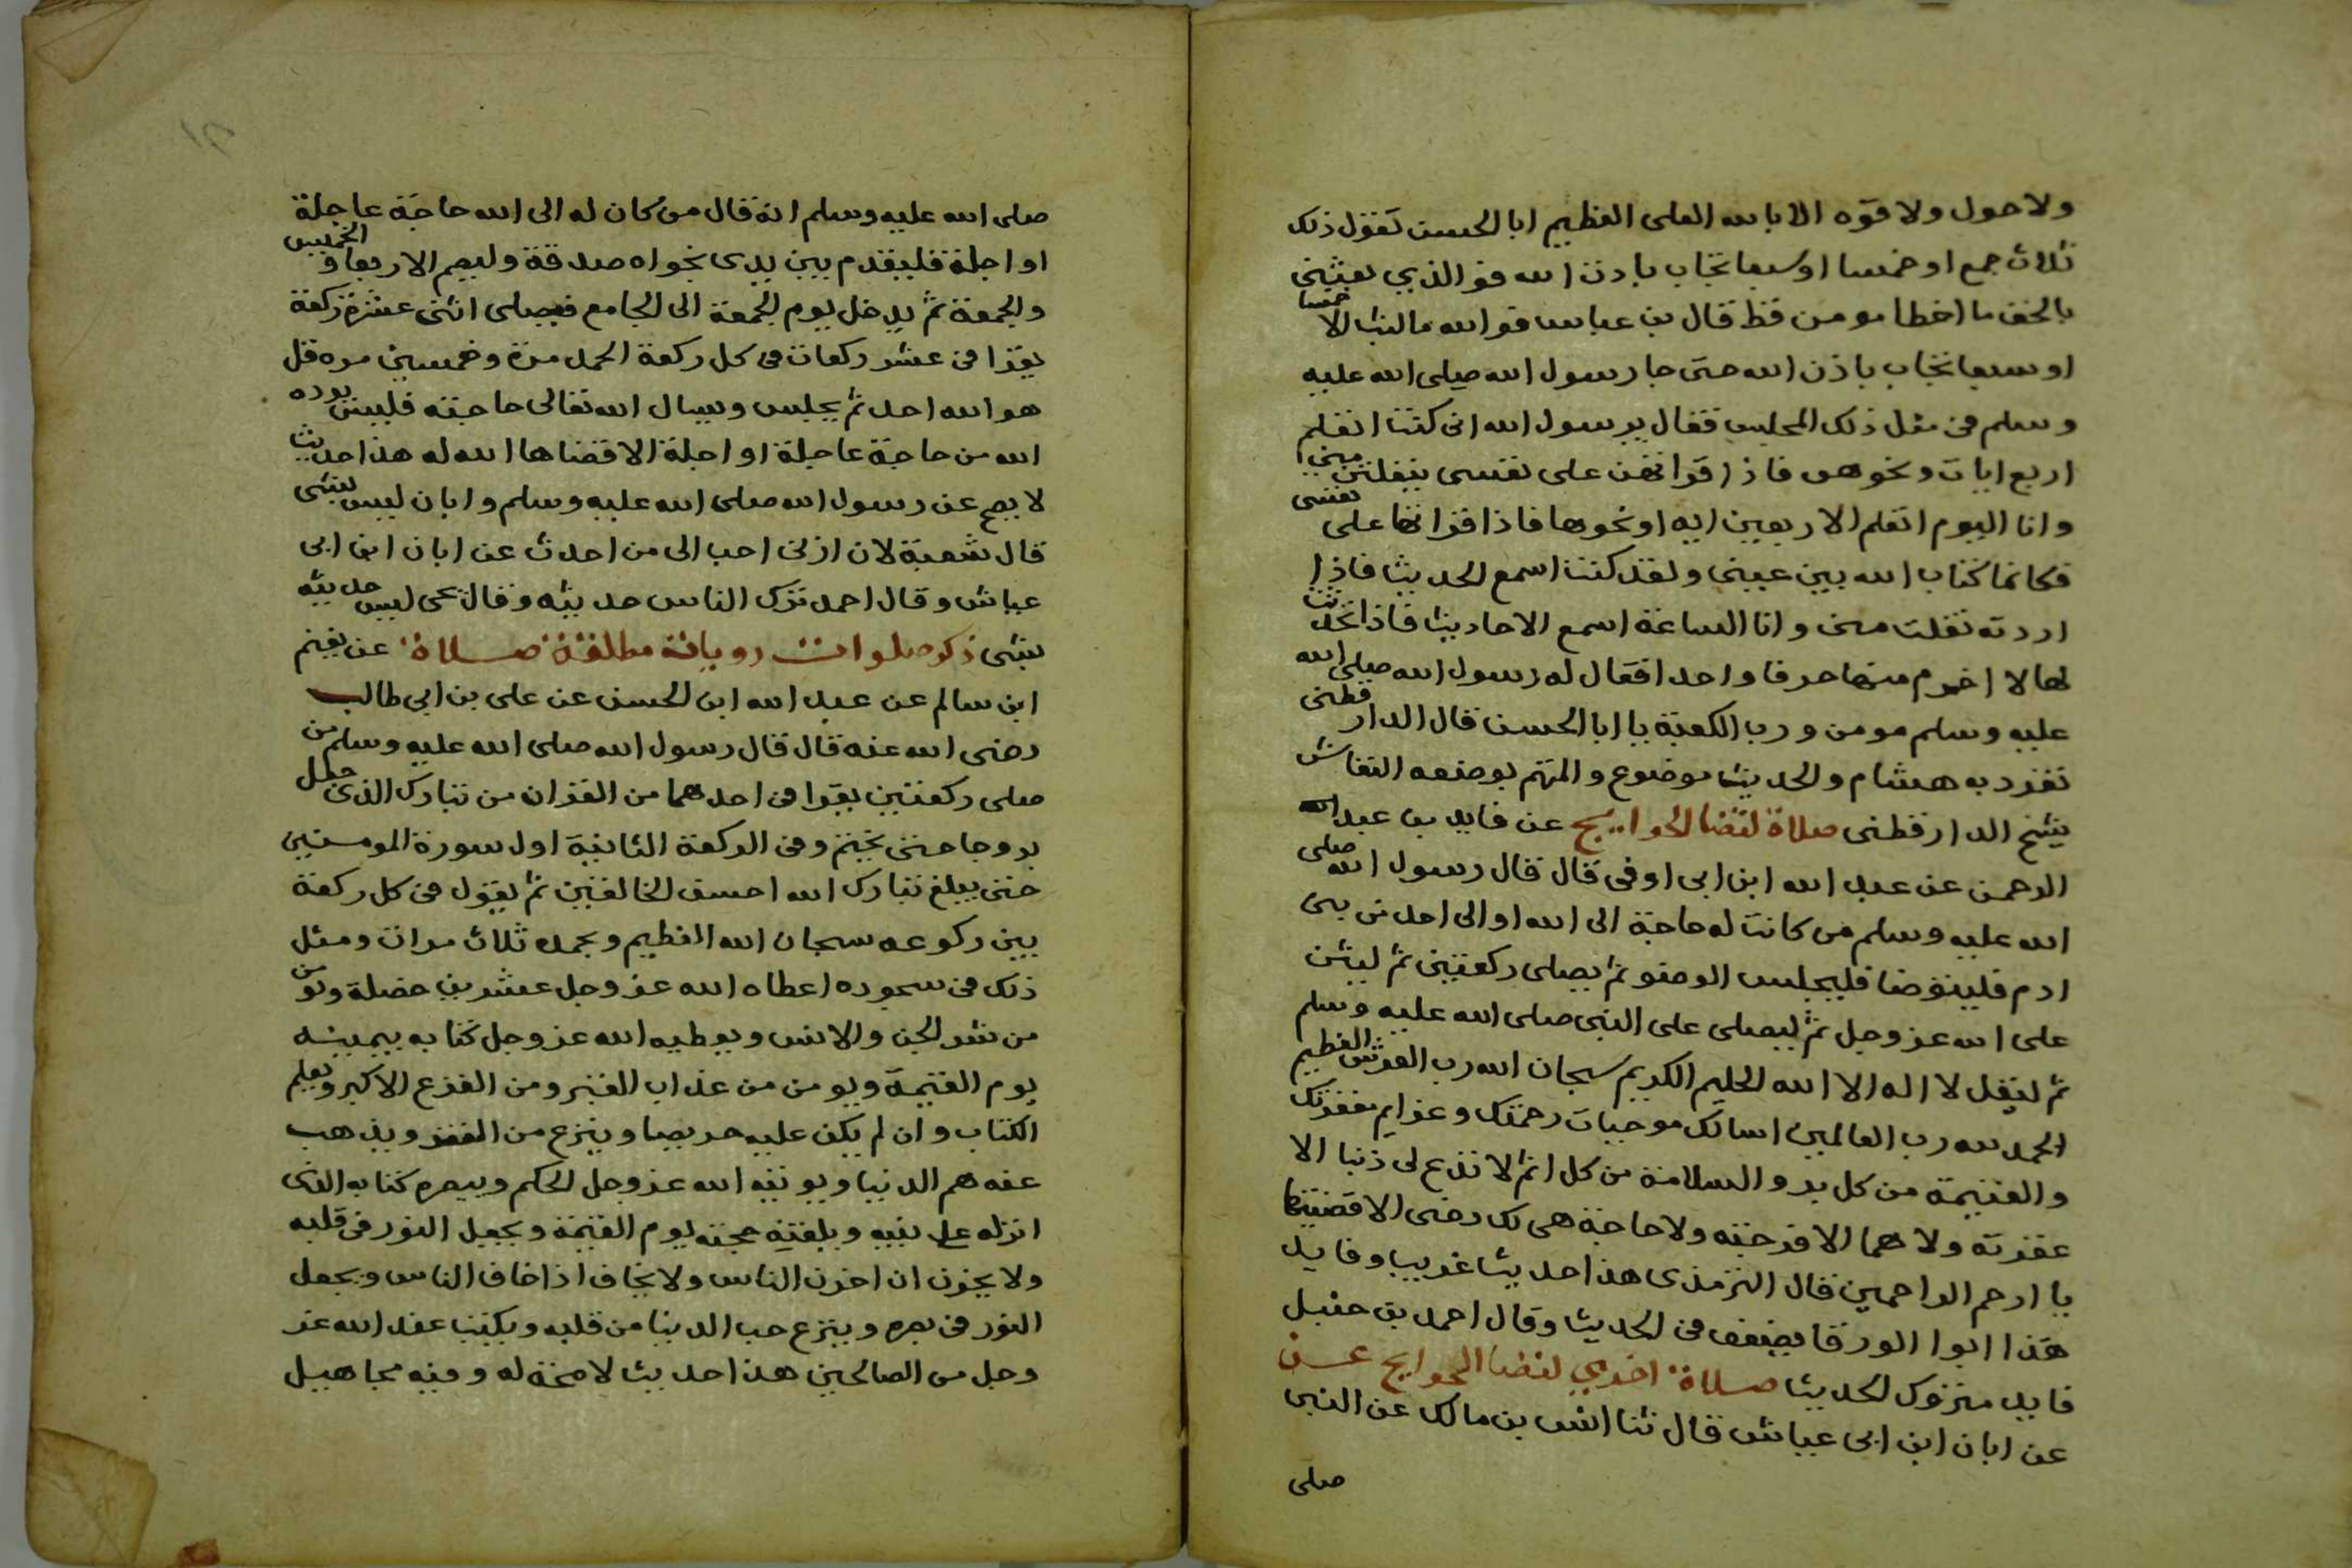 ولا حول ولا قوه الا بالله العلى العظيم ابا الحسن تفعل ذلك
ثلاث جمع او خمسا او سبعا تجاب باذن الله فو الذي بعثني
بالحق ما اخطا مومن قط قال بن عباس فو الله ما لبث الا خمسا
او سبعا تجاب باذن الله حتى جا رسول الله صلى الله عليه
وسلم في مثل ذلك المجلس فقال يرسول الله اني كنت اتعلم
اربع ايات ونحوهن فاذا قراتهن على نفسي يتفلتن مني
وانا اليوم اتعلم الاربعين ايه او نحوها فاذا قراتها على نفسي
فكانما كتاب الله بين عيني ولقد كنت اسمع الحديث فاذا
اردته تفلت مني وانا الساعة اسمع الاحاديث فاذا تحدثت
لها لا اخرم منها حرفا واحدا فقال له رسول الله صلى الله
عليه وسلم مومن ورب الكعبة يا ابا الحسن قال الدارقطني
تفرد به هشام والحديث موضوع والمتهم بوضعه النقاش
شيخ الدارقطنى صلاة لقضا الحوايج عن فايد بن عبد الله
الرحمن عن عبد الله ابن ابى اوفى قال قال رسول الله صلى
الله عليه وسلم من كانت له حاجة الى الله او الى احد من بني
ادم فليتوضا فليجلس الوضو ثم يصلى ركعتين ثم ليثن
على الله عز وجل ثم ليصلى على النبي صلى الله عليه وسلم
ثم ليقل لا اله الا الله الحليم الكريم سبحان الله رب العرش العظيم
الحمد لله رب العالمين اسالك موجبات رحمتك وعزايم مغفرتك
والغنيمة من كل بر والسلامة من كل اثم لا تدع لى ذنبا الا
غفرته ولا هما الا فرجته ولا حاجة هى لك رضى الا قضيتها
يا ارحم الراحمين قال الترمذى هذا حديث غريب وفايد
هذا ابوا الورقا يضعف فى الحديث وقال احمد بن حنبل
فايد متروك الحديث صلاة اخري لقضا الحوايج عن
عن ابان ابن ابى عياش قال ثنا انس بن مالك عن النبى
صلى
صلى الله عليه وسلم انه قال من كان له الى الله حاجة عاجلة
او اجلة فليقدم بين يدى نجواه صدقة وليصم الاربعا والخميس
والجمعة ثم يدخل يوم الجمعة الى الجامع فيصلى اثنى عشرة ركعة
يقرا فى عشر ركعات فى كل ركعة الحمد مرة وخمسين مره قل
هو الله احد ثم يجلس ويسال الله تعالى حاجته فليس يرده
الله من حاجة عاجلة او اجلة الا قضاها الله له هذا حديث
لا يصح عن رسول الله صلى الله عليه وسلم وابان ليس بشى
قال شعبة لان ازنى احب الى من احدث عن ابان ابن ابى
عياش وقال احمد ترك الناس حديثه وقال يحى ليس حديثه
بشى ذكر صلوات رويانه مطلقة صلاة عن يغنم
ابن سالم عن عبد الله ابن الحسن عن على بن ابى طالب
رضى الله عنه قال قال رسول الله صلى الله عليه وسلم من
صلى ركعتين يقرا فى احدهما من الفرقان من تبارك الذى جعل
بروجا حتى يختم وفى الركعة الثانية اول سورة المومنين
حتى يبلغ تبارك الله احسن الخالقين ثم يقول فى كل ركعة
بين ركوعه سبحان الله العظيم وبحمده ثلاث مرات ومثل
ذلك فى سجوده اعطاه الله عز وجل عشرين خصلة ويومن
من شر الجن والانس ويوطيه الله عز وجل كتابه بيمينه
يوم القيمة ويومن من عذاب القبر ومن الفزع الاكبر ويعلم
الكتاب وان لم يكن عليه حريصا وينزع من الفقر ويذهب
عنه هم الدنيا ويوتيه الله عز وجل الحكم ويبصره كتابه الذى
انزله على نبيه ويلقنه حجته يوم القيمة ويجعل النور فى قلبه
ولا يحزن ان احزن الناس ولا يخاف اذا خاف الناس ويجعل
النور فى بصره وينزع حب الدينا من قلبه ويكتب عند الله عز
وجل من الصالحين هذا حديث لا صحة له وفيه مجاهيل